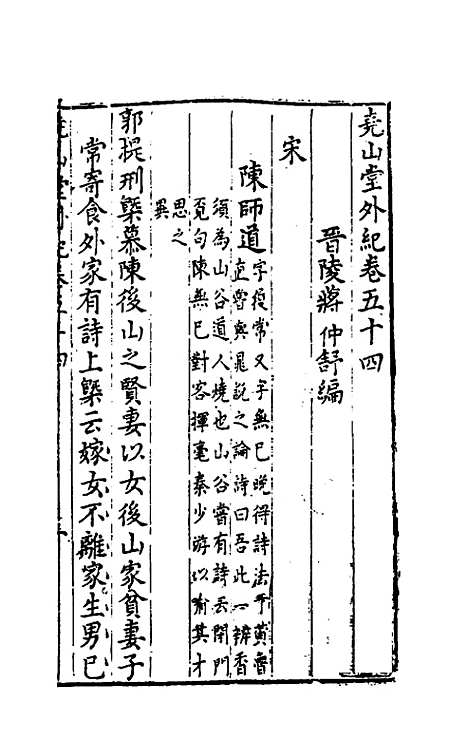 堯山堂外紀卷五十四
晋陵蔣仲舒編
宋
陳師道
字履常又字無巳晚得詩法于黃魯
直嘗與晁說之論詩曰吾此一辨香
須為山谷道人燒也山谷嘗有詩云閉門
覓句陳無巳對客揮毫秦少游以喻其才
思之
異
郭提刑槩慕陳後山之賢妻以女後山家貧妻子
常寄食外家有詩上槩云嫁女不離家生男巳